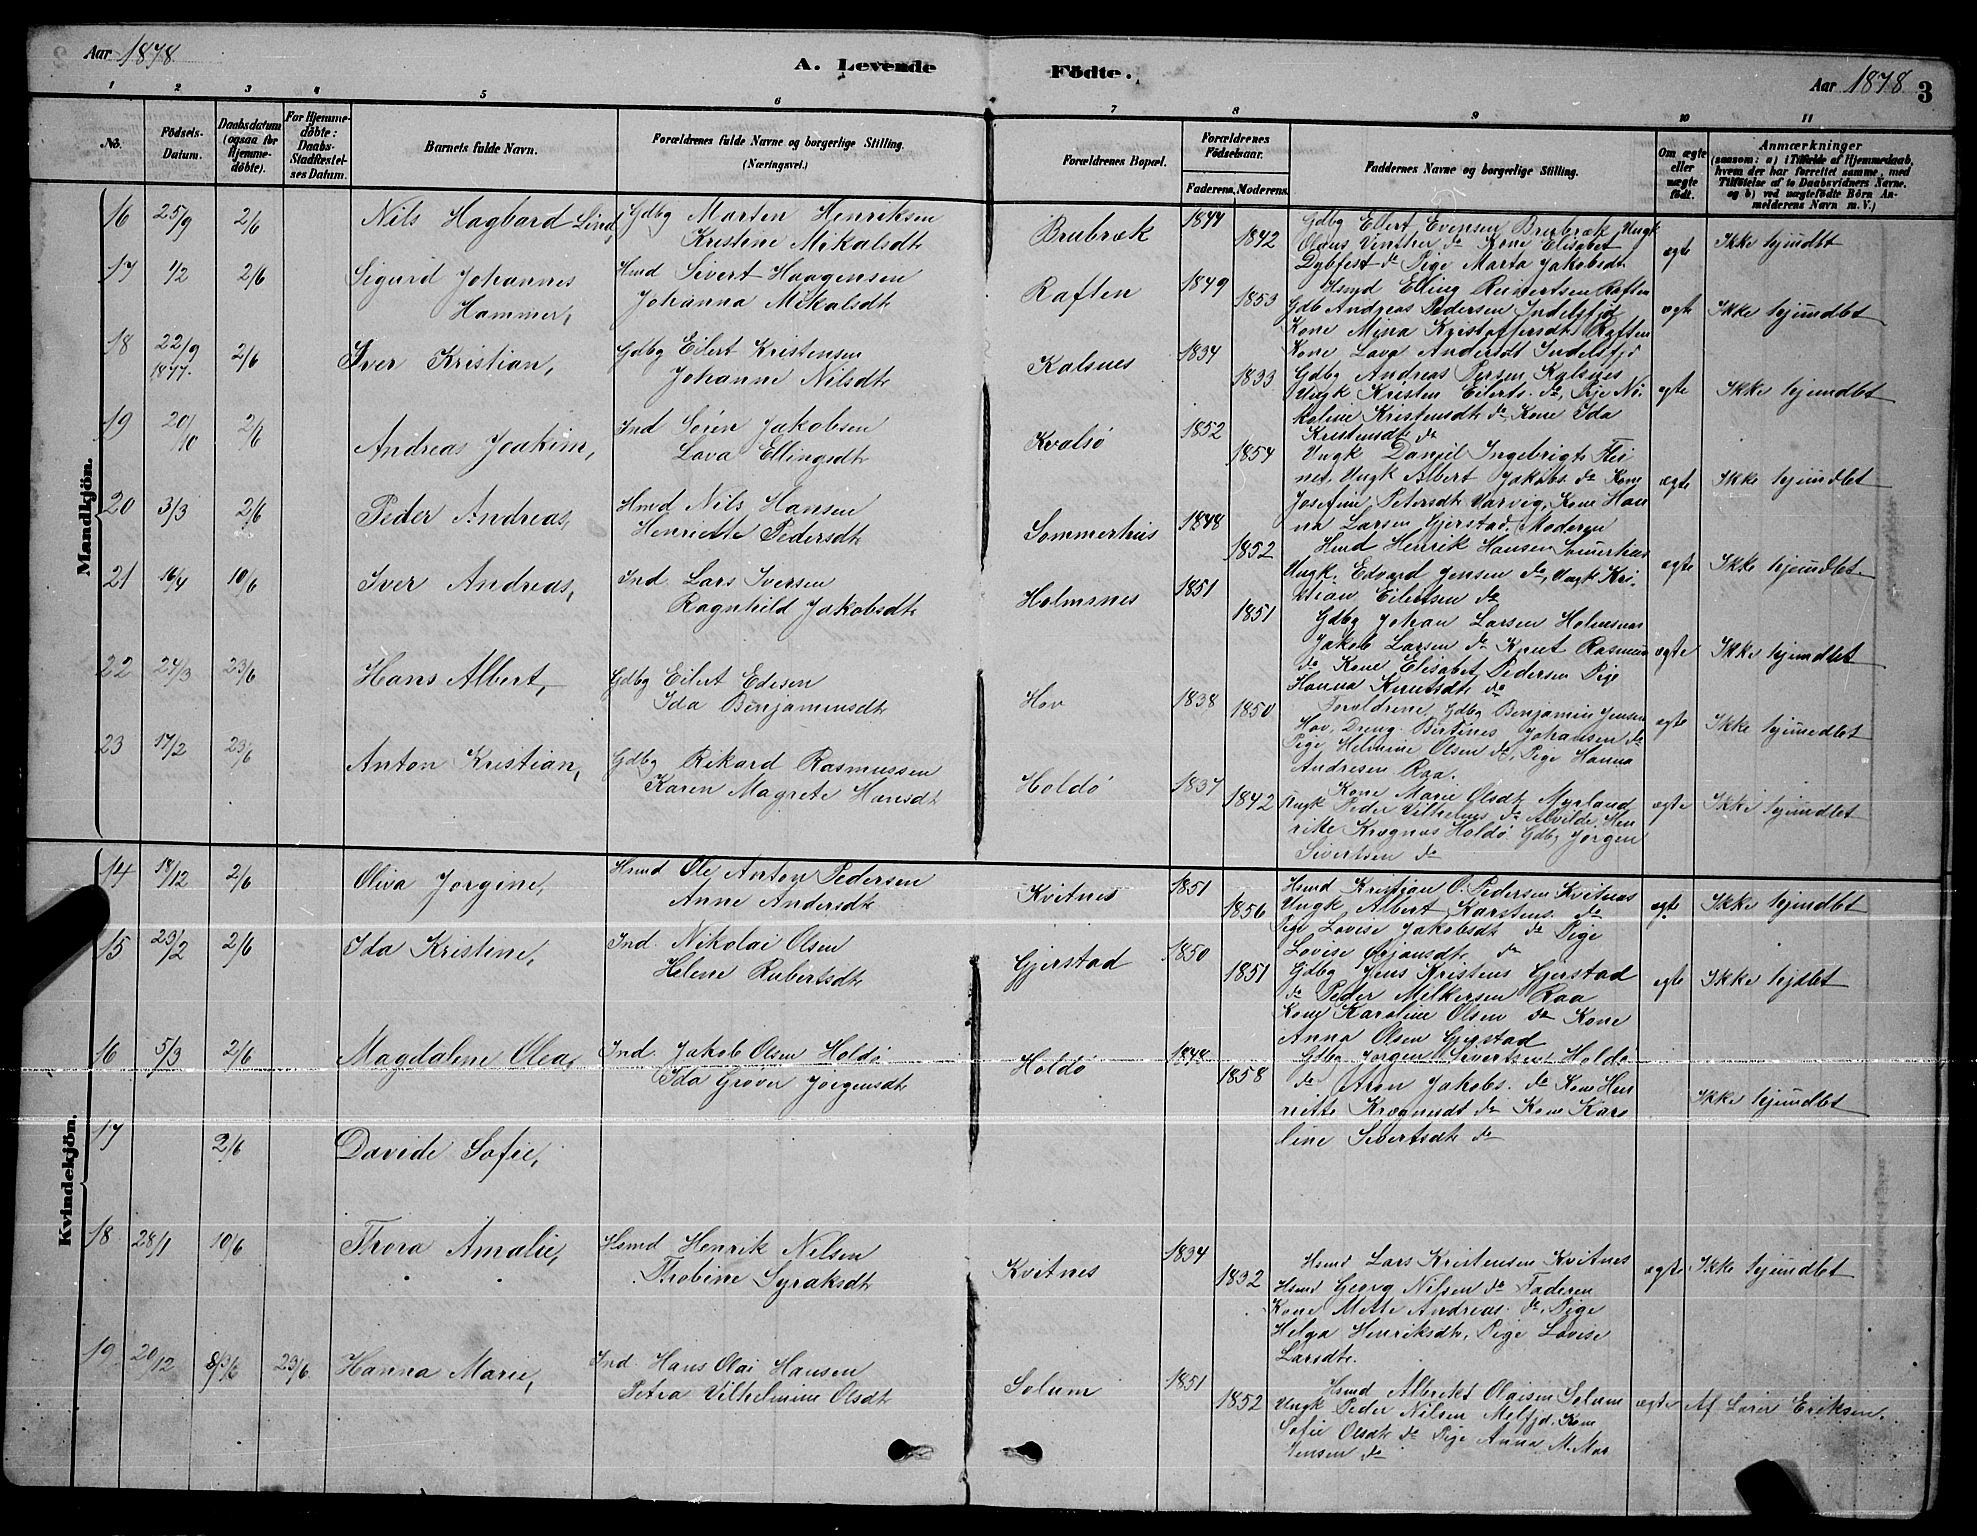 Aar 1878
A. Levende Födte.
Aar 1878. 3
1 2 3 4 5 6 7 8 9 10 11
No. Födsels-Datum. Daabsdatum (ogsaa for Hjemmedöbte). For Hjemmedöbte: Daabs-Stadfæstelses Datum. Barnets fulde Navn. Forældrenes fulde Navne og borgerlige Stilling. (Næringsvei.) Forældrenes Bopæl. Forældrenes Födselsaar. Faderens. Moderens. Faddernes Navne og borgerlige Stilling. Om ægte eller uægte födt. Anmærkninger (saasom: a) i Tilfælde af Hjemmedaab, hvem der har forrettet samme, med Tilföielse af to Daabsvidners Navne. og b) ved uægtefödte Börn Anmelderens Navn m. V.)
Mandkjön.
16 25/9 2/6 Nils Hagbard Lind, Gdbg Morten Henriksen
Kristine Mikalsdt
Brubræk 1844 1842
Gdbg Eilert Evensen Brubræk, Ungk
Olaus Vinther do Kone Elisabet
Dybfest do Pige Marta Jakobsdt
ægte Ikke hjemdbt
17 1/2 2/6 Sigurd Johannes
Hammer,
Hmd Sivert Haagensen
Johanna Mikalsdt
Raften 1849 1853
Hsmd Elling Reinertsen Raften
Gdb Andreas Pedersen Indelsfjd
Kone Mina Kristoffersdt Raften
Kone Lava Andersdt Indelsfjd
ægte Ikke hjemdbt
18 22/9 1877. 2/6 Iver Kristian,
Gdbg Eilert Kristensen
Johanne Nilsdt
Kalsnes 1834 1833
Gdbg Andreas Persen Kalsnes
Ungk Kristen Eilerts. do, Pige Ni-
koline Kristensdt do Kone Ida
Kristensdt do
ægte Ikke hjemdbt
19 20/10 2/6 Andreas Joakim,
Ind Sören Jakobsen
Lava Ellingsdt
Kvalsö 1852 1854
Ungk Daniel Ingebrigts
Ungk Albert Jakobs. do Kone
Josefine Petersdt Varvig, Kone Han
na Larsen Gjerstad, Moderen
ægte Ikke hjemdbt
20 3/3 2/6 Peder Andreas,
Hsmd Nils Hansen
Henriette Pedersdt
Sommerhus 1848 1852
Hsmd Henrik Hansen Somerhus
Ungk. Edvard Jensen do, Ungk Kri-
stian Eilertsen do
ægte Ikke hjemdbt.
21 16/4 10/6 Iver Andreas,
Ind. Lars Iversen
Ragnhild Jakobsdt
Holmsnes 1851 1851
Gdbg Johan Larsen Holmsnes
Jakob Larsen do Knut Rasmus
do Kone Elisabet Pedersen Pige
Hanna Knutsdt do
ægte Ikke hjemdbt
22 24/3 23/6 Hans Albert,
Gdbg Eilert Edisen
Ida Benjaminsdt
Hov 1838 1850
Foreldrene, Gdbg Benjamin Jensen
Hov, Dreng Bertines Johansen do
Pige Helmine Olsen do, Pige Hanna
Andresen Raa.
ægte Ikke hjemdbt
23 17/2 23/6 Anton Kristian,
Gdbg Rikard Rasmussen
Karen Magrete Hansdt
Holdö 1837 1842
Kone Marie Olsdt Myrland
Ungk Peder Vilhelms do Alvilde Hen
rikke Krogness Holdö Gdbg Jörgen
Sivertsen do
ægte Ikke hjemdbt
Kvindekjön.
14 18/12 2/6 Oliva Jorgine,
Hsmd Ole Anton Pedersen
Anne Andersdt
Kvitnes 1851 1856
Hsmd Kristian O. Pedersen Kvitnes
Ungk Albert Karstens. do
Pige Lovise Jakobsdt do Pige
Lovise Örjansdt do
ægte Ikke hjemdbt
15 23/2 2/6 Ida Kristine,
Ind. Nikolai Olsen
Helene Rubertsdt
Gjerstad 1850 1851
Gdbg Jens Kristens Gjerstad
do Peder Melkersen Raa
Kone Karoline Olsen do Kone
Anna Olsen Gjerstad
ægte Ikke hjdbt
16 5/3 2/6 Magdalene Olea,
Ind. Jakob Olsen Holdö
Ida Gröver Jörgensdt
Holdö 1848 1858
Gdbg Jorgen Sivertsen Holdö
do Aron Jakobs. do Kone Hen
riette Krognesdt do Kone Karo
line Sivertsdt do
Ikke hjemdbt
17 2/6 Davide Sofie,
18 28/1 10/6 Thora Amalie,
Hsmd Henrik Nilsen
Thobine Syraksdt
Kvitnes 1834 1832
Hsmd Lars Kristensen Kvitnes
Hsmd Georg Nilsen do Faderen
Kone Mette Andreas. do, Pige
Helga Henriksdt, Pige Lovise
Larsdt.
ægte Ikke hjemdbt
19 20/12 23/6 Hanna Marie,
Ind. Hans Olai Hansen
Petra Vilhelmine Olsdt
Solum 1851 1852
Hsmd Albrikt Olaisen Solum
Ungk Peder Nilsen Melfjd. Kone
Sofie Olsdt do Pige Anna M. Mor
tensen do
ægte Af Lærer Eriksen.